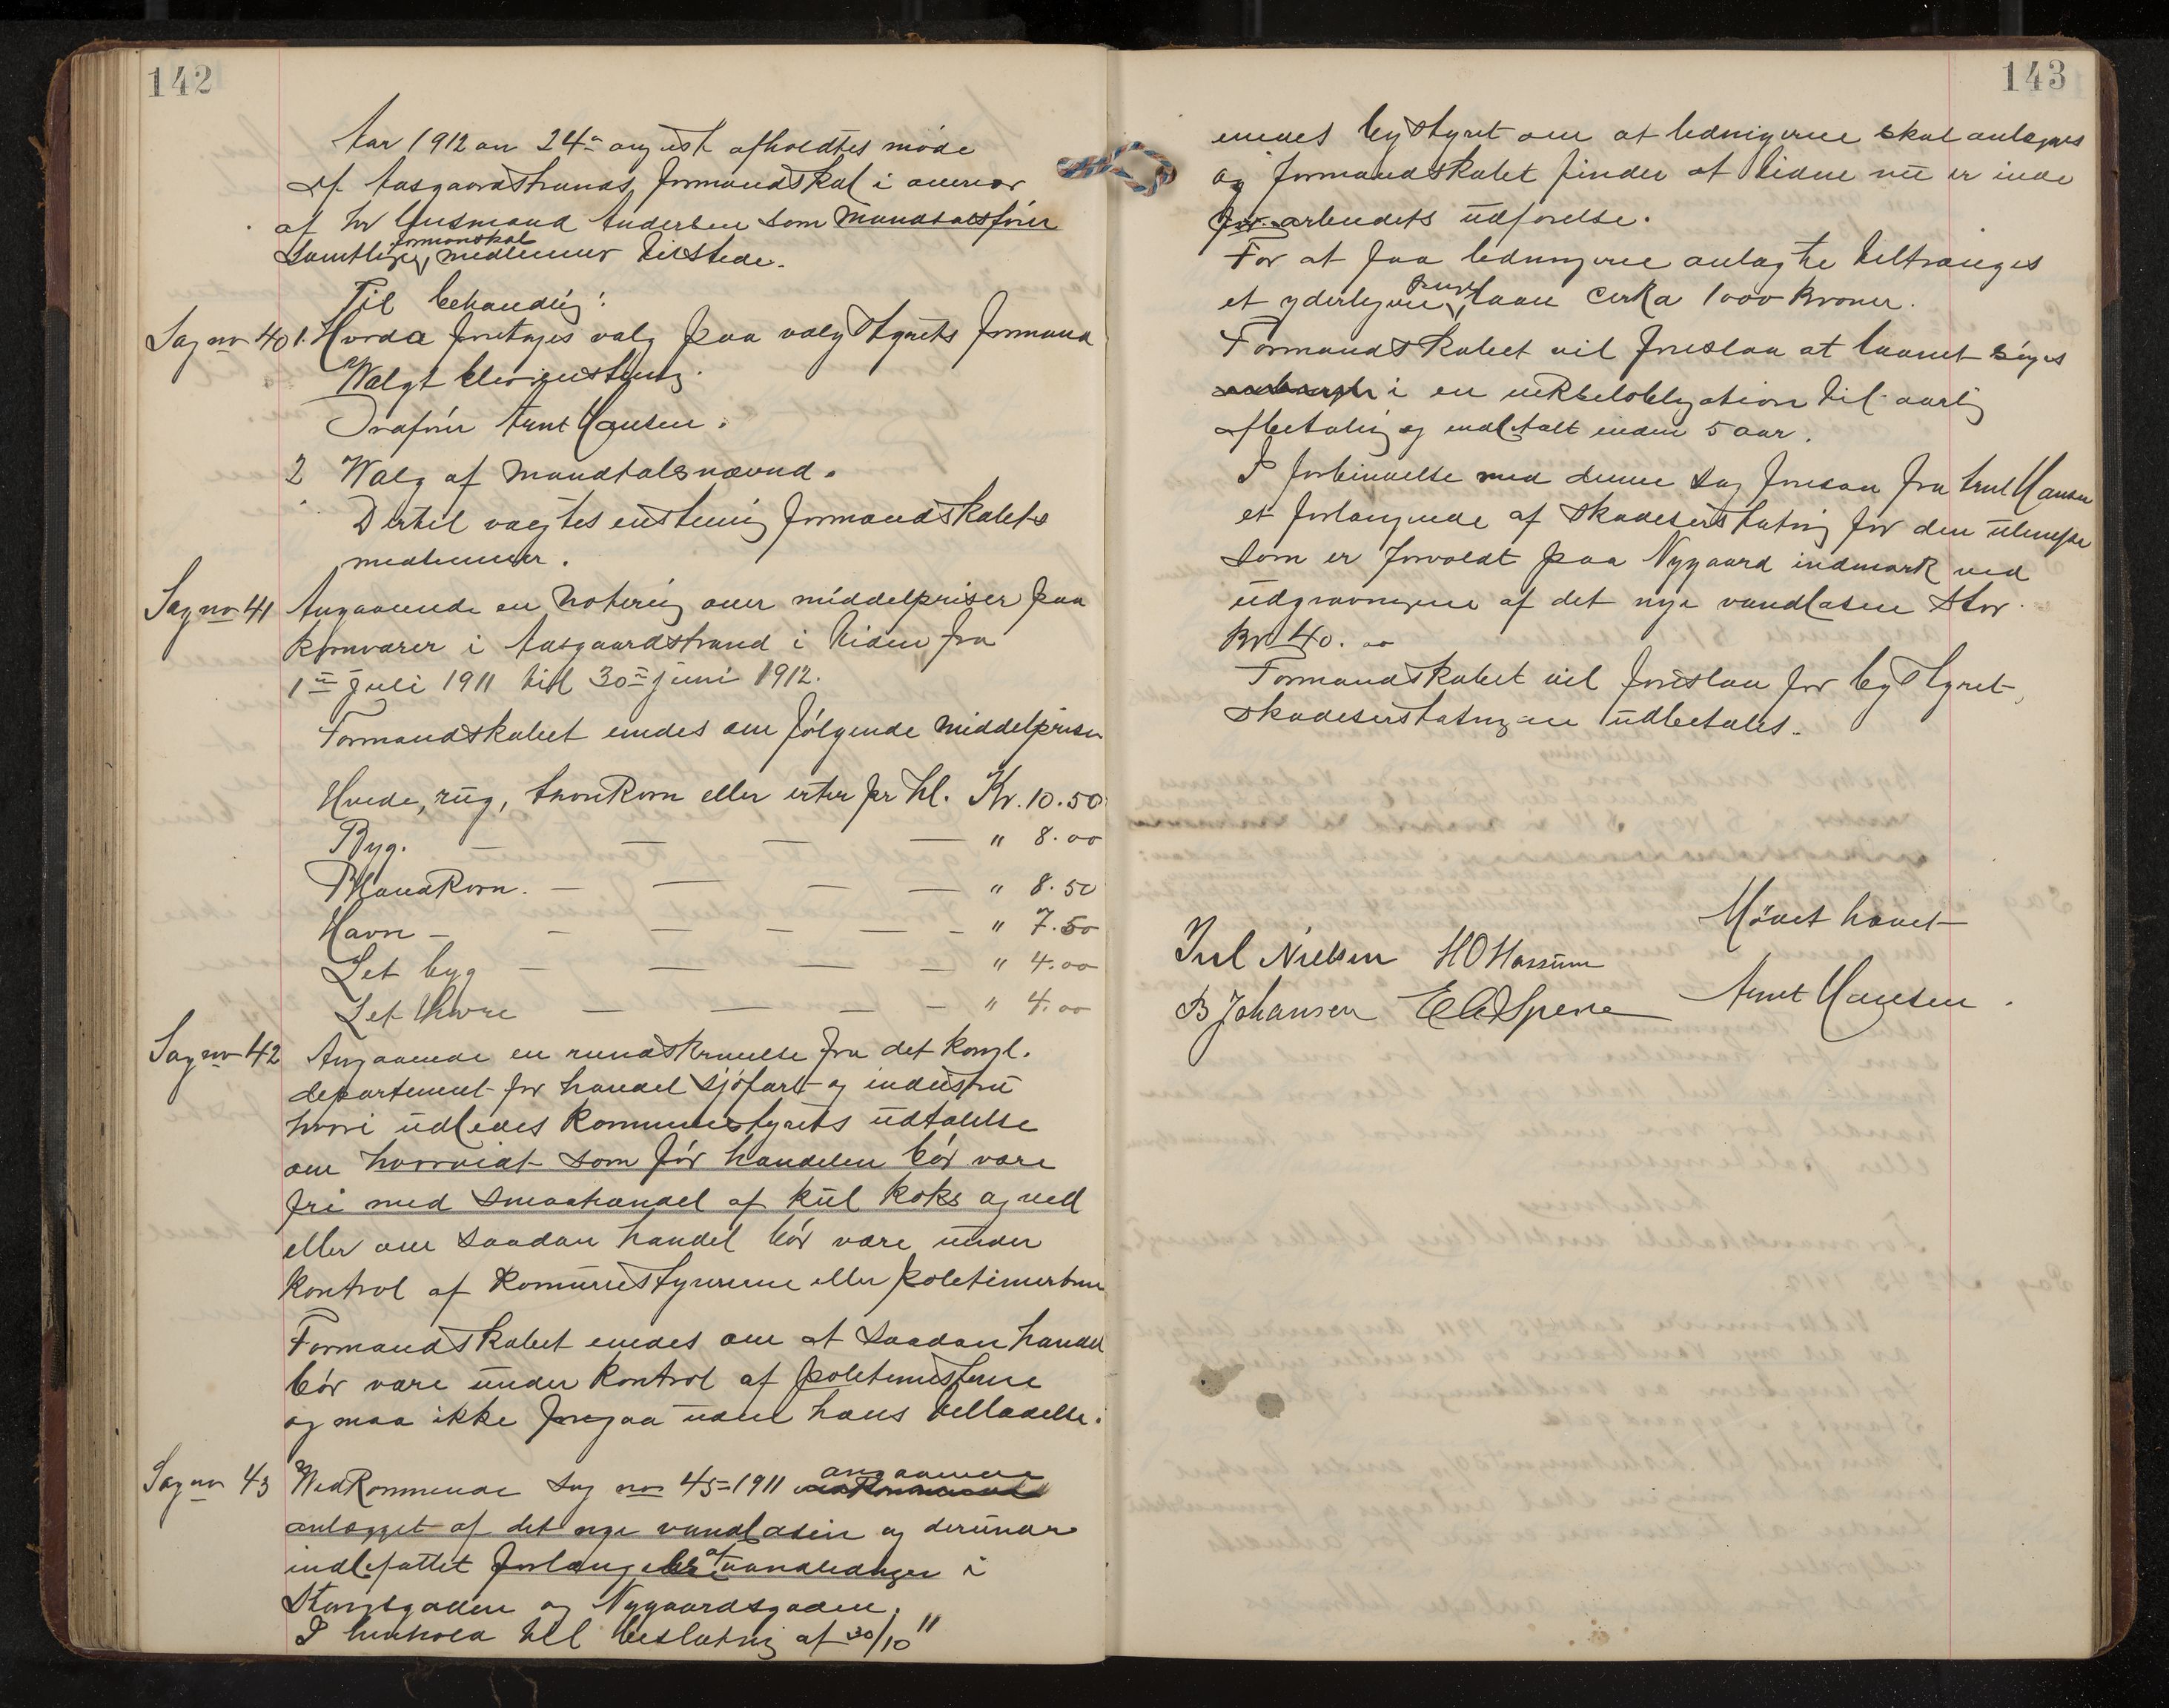 142
Aar 1912 den 24de august afholdtes møde
af Aasgaardstrands formandskab i nærvær
af hr lensmand Andersen som mandtalsfører
formanskab
Samtlige medlemmer tilstede.
Til behandling:
Sag no 40 1. Hvorda foretages valg paa valgstyrets formand
Walgt blev enstemig
Ordfører Arnt Hansen.
2 Walg af mandtalsnævnd.
Dertil valgtes enstemig formandskabets
medlemmer.
Sag no 41 Angaaende en notering over middelpriser paa
kornvarer i Aasgaardstrand i tiden fra
1ste Juli 1911 til 30te juni 1912.
Formandskabet enedes om følgende middelpriser
Hvede, rüg, komkorn eller erter pr hl. Kr. 10.50
Byg. — — — — " 8.00
Blandkorn. — — — — " 8.50
Havre — — — — — — " 7.50
Let byg — — — — " 4.00
Let havre — — — — " 4.00
Sag no 42 Angaaende en rundskrivelse fra det kongl.
departement for handel sjøfart og industri
hvori udbedes kommunestyrets udtalelse
om hvorvidt som før handelen bør være
fri med smaahandel af kul koks og ved
eller om saadan handel bør være under
kontrol af komunestyrerne eller politimesteren
Formandskabet enedes om at saadan handel
bør være under kontrol af politimesteren
og maa ikke foregaa uden hans tilladelse.
angaaende
Sag no 43 Vedkommende sag no 45-1911 vedkommende
anlægget af det nye vandbasin og derunder
indbefattet forlængelse af vandledninger i
Stangsgaden og Nygaardsgaden.
I henhold til beslutning af 30/10 11
143
enedes bystyret om at ledningerne skal anlægges
og formandskabet finder at tiden nu er inde
for arbeidets udførelse.
For at faa ledningerne anlagte tiltrænges
et yderligere laan cirka 1000 kroner.
Formandskabet vil foreslaa at laanet søges
i en vekselobligation til aarlig
afbetaling og indbetalt inden 5 aar.
I forbindelse med denne sag forelaa fra Arnt Hansen
et forlangende af skadeserstatning for den ulempe
som er forvoldt paa Nygaard indmark ved
udgravningene af det nye vandbasin stor
Kr 40.00
Formandskabet vil foreslaa for bystyret
skadeserstatningen udbetales.
Mødet hævet
Jul Nielsen H O Hassum
B Johansen Arnt Hansen.